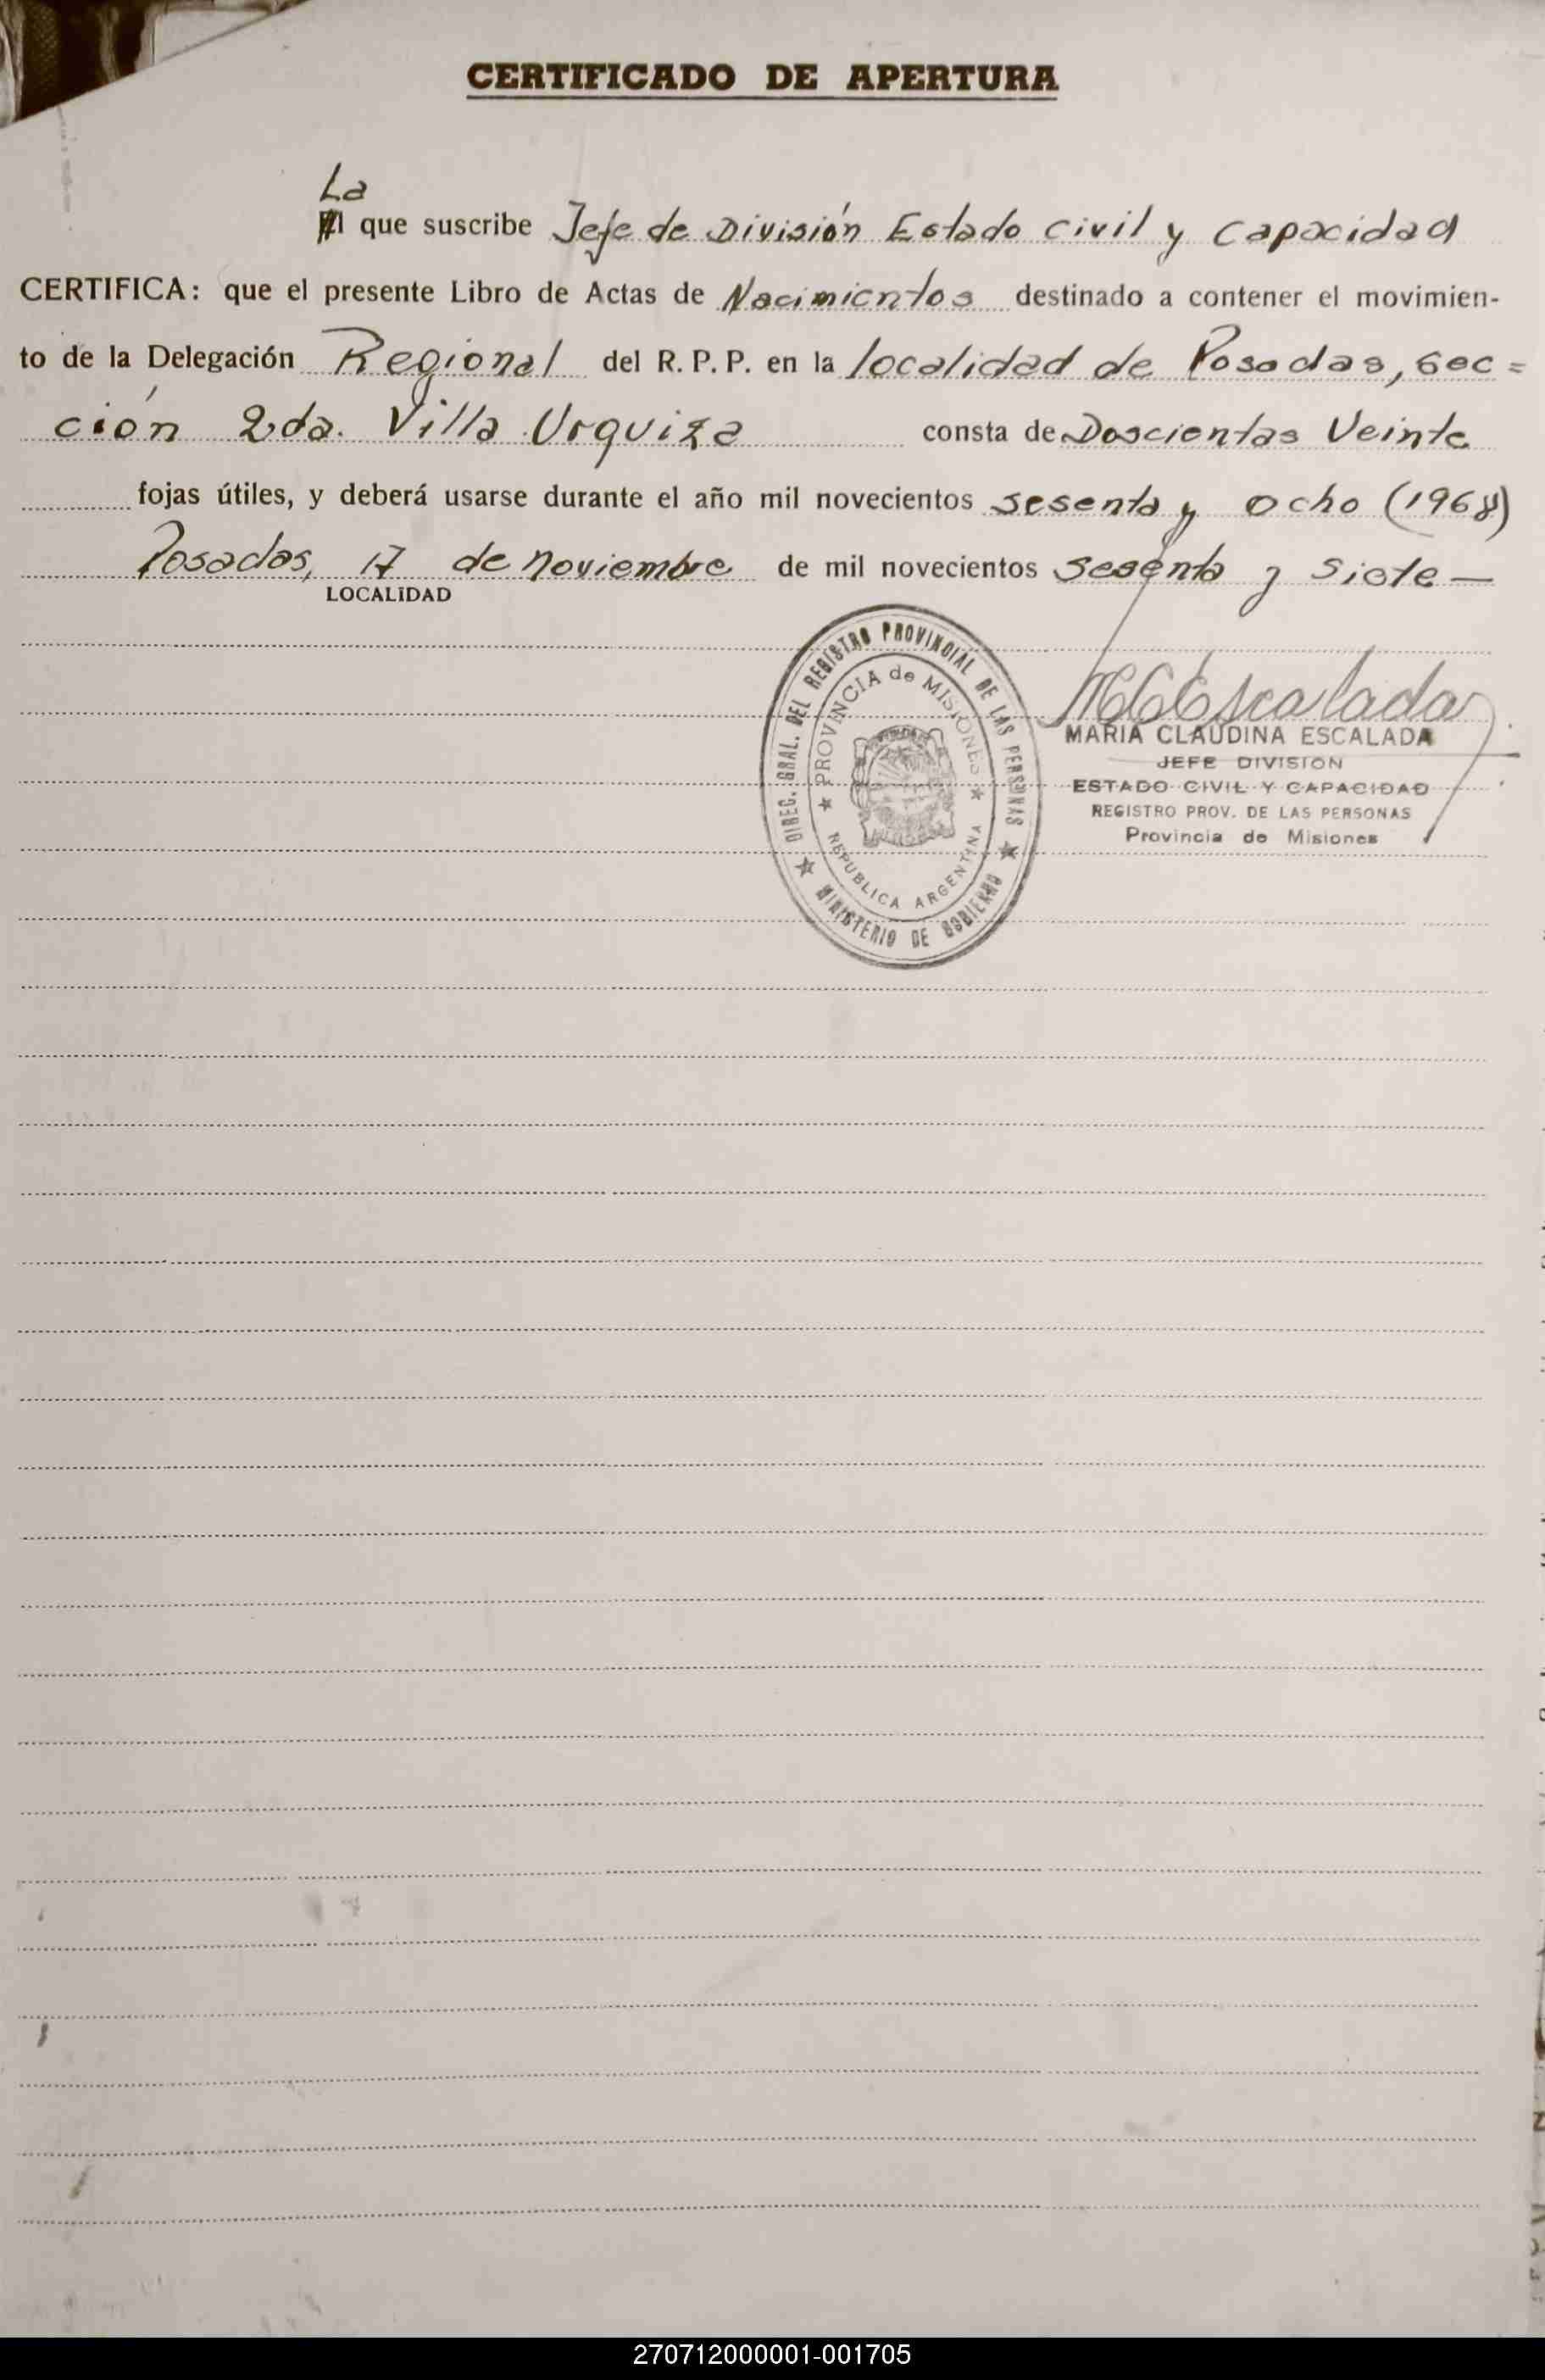 CERTIFICADO DE APERTURA
La
El que suscribe Jefe de División Estado civil y capacidad
CERTIFICA: que el presente Libro de Actas de Nacimientos destinado a contener el movimien-
to de la Delegación Regional del R. P. P. en la localidad de Posadas, sec=
ción 2da. Villa Urquiza consta de Doscientas Veinte
fojas útiles, y deberá usarse durante el año mil novecientos sesenta y ocho (1968)
Posadas, 17 de noviembre de mil novecientos sesenta y siete —
LOCALIDAD
DIREC. GRAL. DEL REGISTRO PROVINCIAL DE LAS PERSONAS
★ MINISTERIO DE GOBIERNO ★
★ PROVINCIA de MISIONES ★
REPUBLICA ARGENTINA
MCEscalada
MARIA CLAUDINA ESCALADA
JEFE DIVISION
ESTADO CIVIL Y CAPACIDAD
REGISTRO PROV. DE LAS PERSONAS
Provincia de Misiones
270712000001-001705